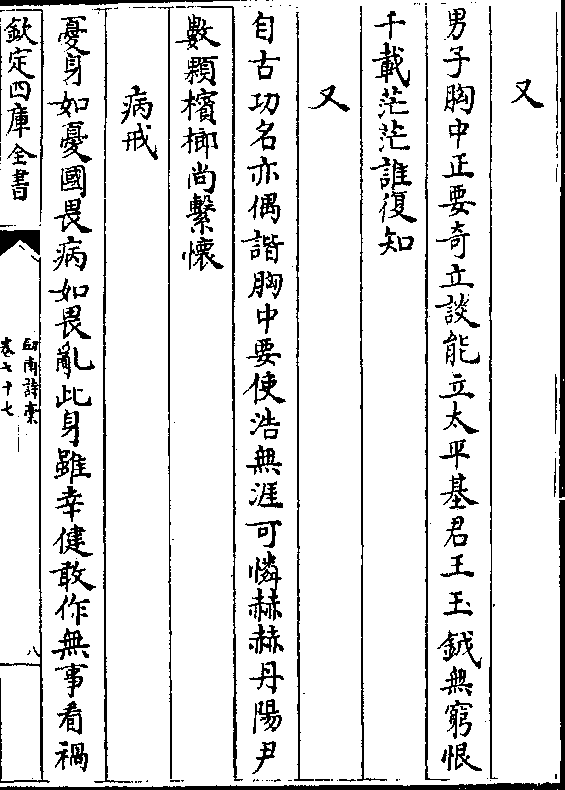 又
男子胸中正要奇立談能立太平基君王玉鉞無窮恨
千載茫茫誰復知
又
自古功名亦偶諧胸中要使浩無涯可憐赫赫丹陽尹
數顆檳榔尚繫懷
病戒
憂身如憂國畏病如畏亂此身雖幸健敢作無事看禍
欽定四庫全書
劒南詩稾
卷七十七
八